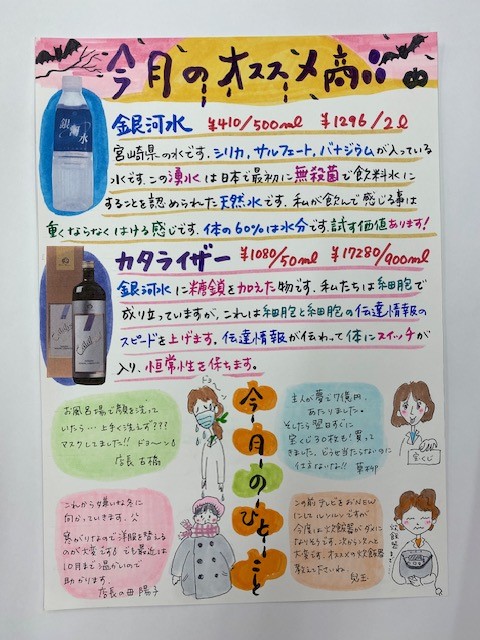 今月のオススメ商品
銀河水 ¥410/500ml ¥1296/2l
宮崎県の水です。シリカ、サルフェート、バナジウムが入っている
水です。この湧水は日本で最初に無殺菌で飲料水に
することを認められた天然水です。私が飲んで感じる事は
重くならなくはける感じです。体の60%は水分です。試す価値あります!
銀河水
カタライザー ¥1080/50ml ¥17280/900ml
銀河水に糖鎖を加えた物です。私たちは細胞で
成り立っていますが、これは細胞と細胞の伝達情報の
スピードを上げます。伝達情報が伝わって体にスイッチが
入り、恒常性を保ちます。
今月のひとこと
お風呂場で顔を洗って
いたら…上手く洗えず???
マスクしてました!! ドヨ〜ン
店長 古橋
ドヨ〜ン
主人が夢で7億円
あたりました。
そしたら翌日すぐに
宝くじ30枚も!買って
きました。どうせ当たらないのに
仕方ないな!!
草柳
宝くじ
これから嫌いな冬に
向かっていきます。
寒がりなので洋服を替える
のが大変です。でも最近は
10月まで温かいので
助かります。
店長の母 陽子
この前テレビをおNEW
にしてルンルンですが
今度は炊飯器がダメに
なりそうです。次から次へと
大変です。オススメの炊飯器
教えてくださいね。
兒玉
炊飯器